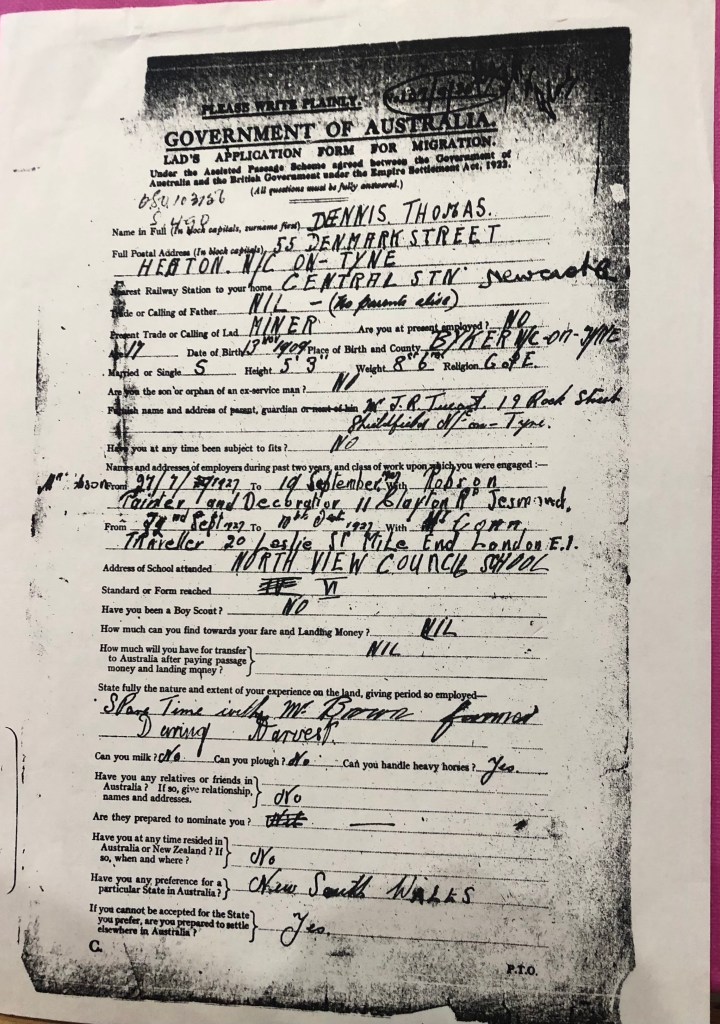 PLEASE WRITE PLAINLY.
GOVERNMENT OF AUSTRALIA.
LAD'S APPLICATION FORM FOR MIGRATION.
Under the Assisted Passage Scheme agreed between the Government of
Australia and the British Government under the Empire Settlement Act, 1922.
(All questions must be fully answered.)
Name in Full (In block capitals, surname first) DENNIS THOMAS.
Full Postal Address (In block capitals) 55 DENMARK STREET
HEATON. N/C ON-TYNE
Nearest Railway Station to your home CENTRAL STN Newcastle
Trade or Calling of Father NIL - (No parents alive)
Present Trade or Calling of Lad MINER Are you at present employed? NO
Age 17 Date of Birth 13 Nov 1909 Place of Birth and County BYKER N/C-ON-TYNE
Married or Single S Height 5' 3" Weight 8 6 Religion C of E.
Are you the son or orphan of an ex-service man? No
Furnish name and address of parent, guardian or next of kin Mr J.R. 19 Rock Street
Shieldfield N/-on-Tyne.
Have you at any time been subject to fits? No
Names and addresses of employers during past two years, and class of work upon which you were engaged :—
From 27/7/1927 To 19 September 1927 With Robson
Painter and Decoration 11 Clayton Rd Jesmond.
From 22nd Sept 1927 To 1927 With Mr
Traveller 20 Leslie St Mile End London E.1.
Address of School attended NORTH VIEW COUNCIL SCHOOL
Standard or Form reached VI
Have you been a Boy Scout? NO
How much can you find towards your fare and Landing Money? NIL
How much will you have for transfer
to Australia after paying passage
money and landing money? NIL
State fully the nature and extent of your experience on the land, giving period so employed—
Spare Time with Mr Brown farmer
During Harvest.
Can you milk? No Can you plough? No Can you handle heavy horses? Yes.
Have you any relatives or friends in
Australia? If so, give relationship,
names and addresses. No
Are they prepared to nominate you? —
Have you at any time resided in
Australia or New Zealand? If
so, when and where? No
Have you any preference for a
particular State in Australia? New South WALES
If you cannot be accepted for the State
you prefer, are you prepared to settle
elsewhere in Australia? Yes.
C.
P.T.O.